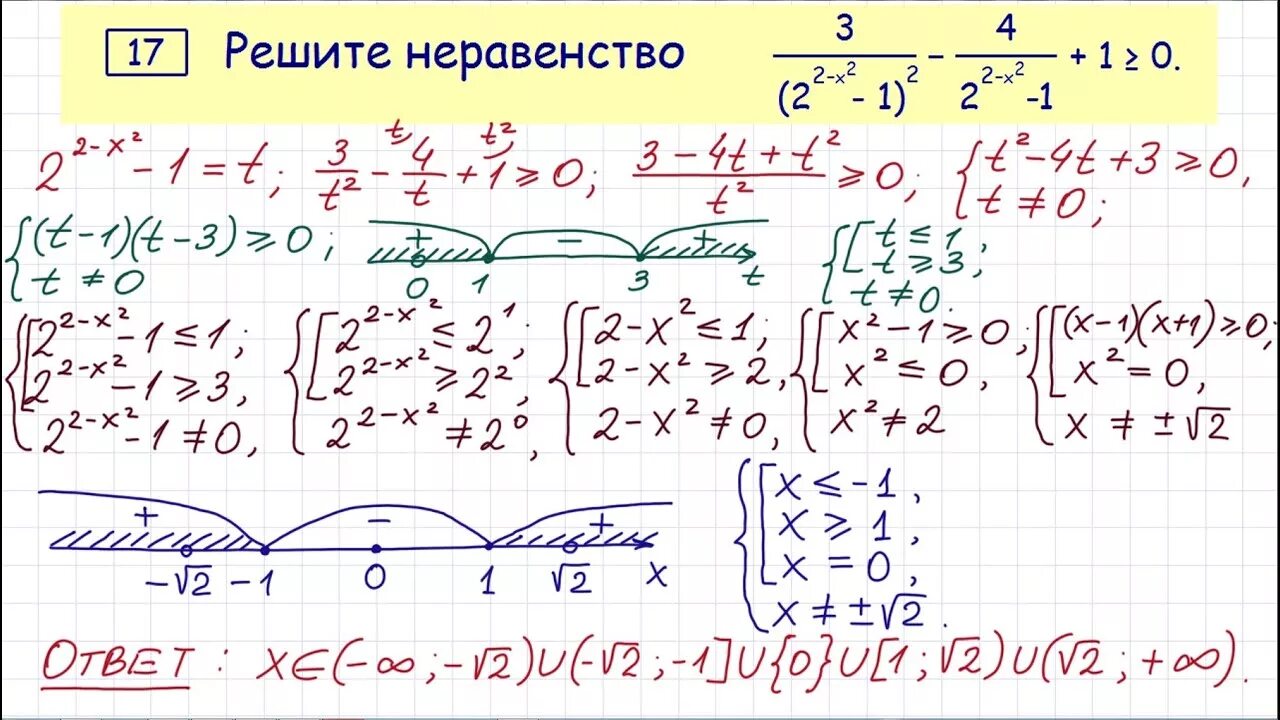 17 Решите неравенство 3/(2^(2-x²) - 1)² - 4/(2^(2-x²) -1) + 1 ≥ 0.
2^(2-x²) - 1 = t; 3/t² - 4/t + 1 ≥ 0; (3 - 4t + t²)/t² ≥ 0; { t² - 4t + 3 ≥ 0, t ≠ 0;
t, t²,
{ (t-1)(t-3) ≥ 0; t ≠ 0
+ - +
0 1 3 t
{ [ t ≤ 1, t ≥ 3; t ≠ 0.
{ [ 2^(2-x²) - 1 ≤ 1; 2^(2-x²) - 1 ≥ 3, 2^(2-x²) - 1 ≠ 0,
{ [ 2^(2-x²) ≤ 2¹; 2^(2-x²) ≥ 2², 2^(2-x²) ≠ 2⁰,
{ [ 2 - x² ≤ 1; 2 - x² ≥ 2, 2 - x² ≠ 0,
{ [ x² - 1 ≥ 0; x² ≤ 0, x² ≠ 2
{ [ (x-1)(x+1) ≥ 0; x² = 0, x ≠ ±√2
+ - +
-√2 -1 0 1 √2 x
{ [ x ≤ -1, x ≥ 1, x = 0, x ≠ ±√2.
Ответ: x∈(-∞; -√2)∪(-√2; -1]∪{0}∪[1; √2)∪(√2; +∞).